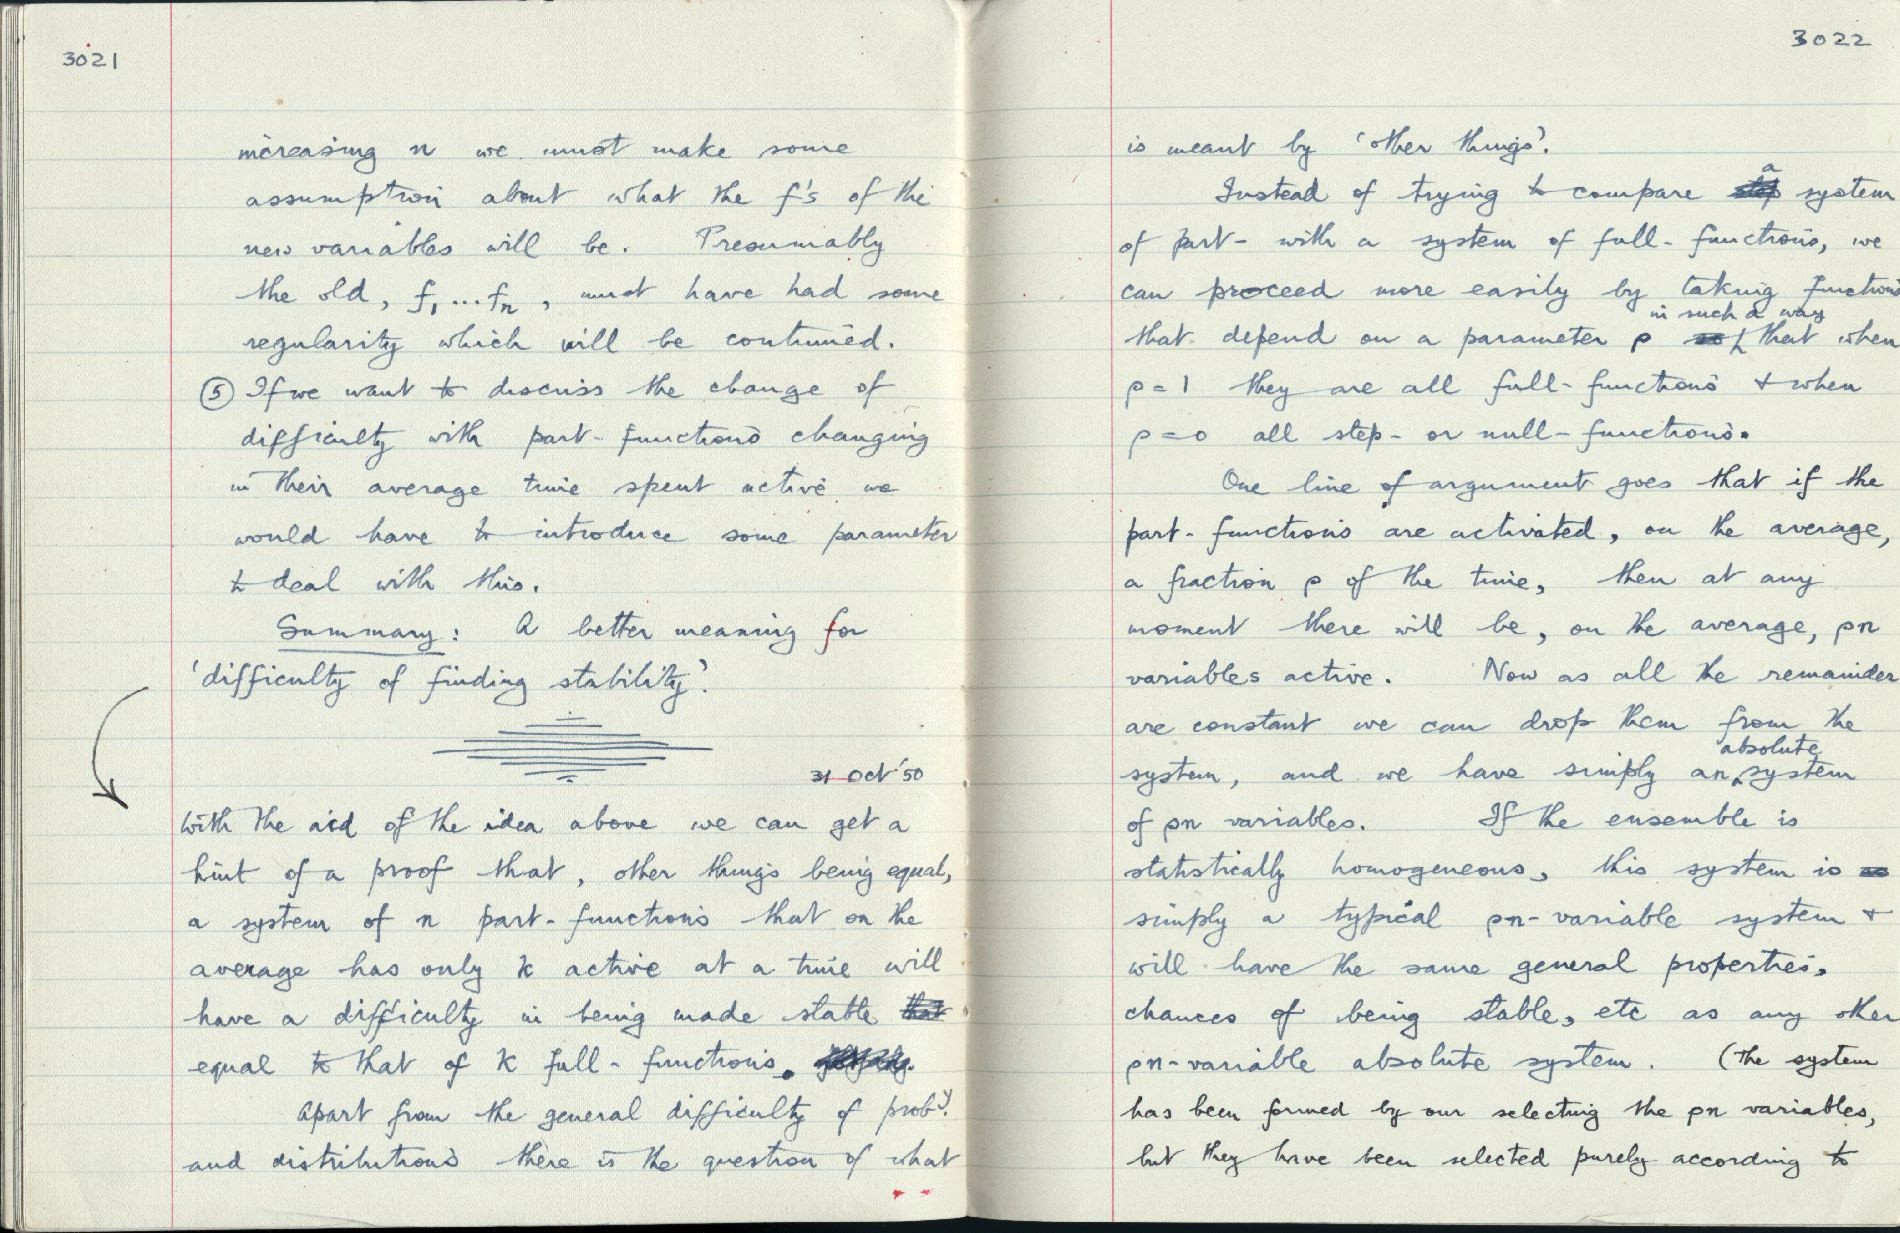 3021
increasing n we must make some
assumption about what the f's of the
new variables will be. Presumably
the old, f₁ ... fₙ, must have had some
regularity which will be continued.
⑤ If we want to discuss the change of
difficulty with part-functions changing
in their average time spent active we
would have to introduce some parameter
to deal with this.
Summary: A better meaning for
'difficulty of finding stability'.
31 Oct '50
With the aid of the idea above we can get a
hint of a proof that, other things being equal,
a system of n part-functions that on the
average has only k active at a time will
have a difficulty in being made stable that
equal to that of k full-functions.
Apart from the general difficulty of prob^y.
and distributions there is the question of what
3022
is meant by 'other things'.
Instead of trying to compare step a system
of part- with a system of full-functions, we
can proceed more easily by taking functions
that depend on a parameter ρ so in such a way that when
ρ = 1 they are all full-functions & when
ρ = 0 all step- or null-functions.
One line of argument goes that if the
part-functions are activated, on the average,
a fraction ρ of the time, then at any
moment there will be, on the average, ρn
variables active. Now as all the remainder
are constant we can drop them from the
system, and we have simply an absolute system
of ρn variables. If the ensemble is
statistically homogeneous, this system is
simply a typical ρn-variable system &
will have the same general properties,
chances of being stable, etc as any other
ρn-variable absolute system. (The system
has been formed by our selecting the ρn variables,
but they have been selected purely according to